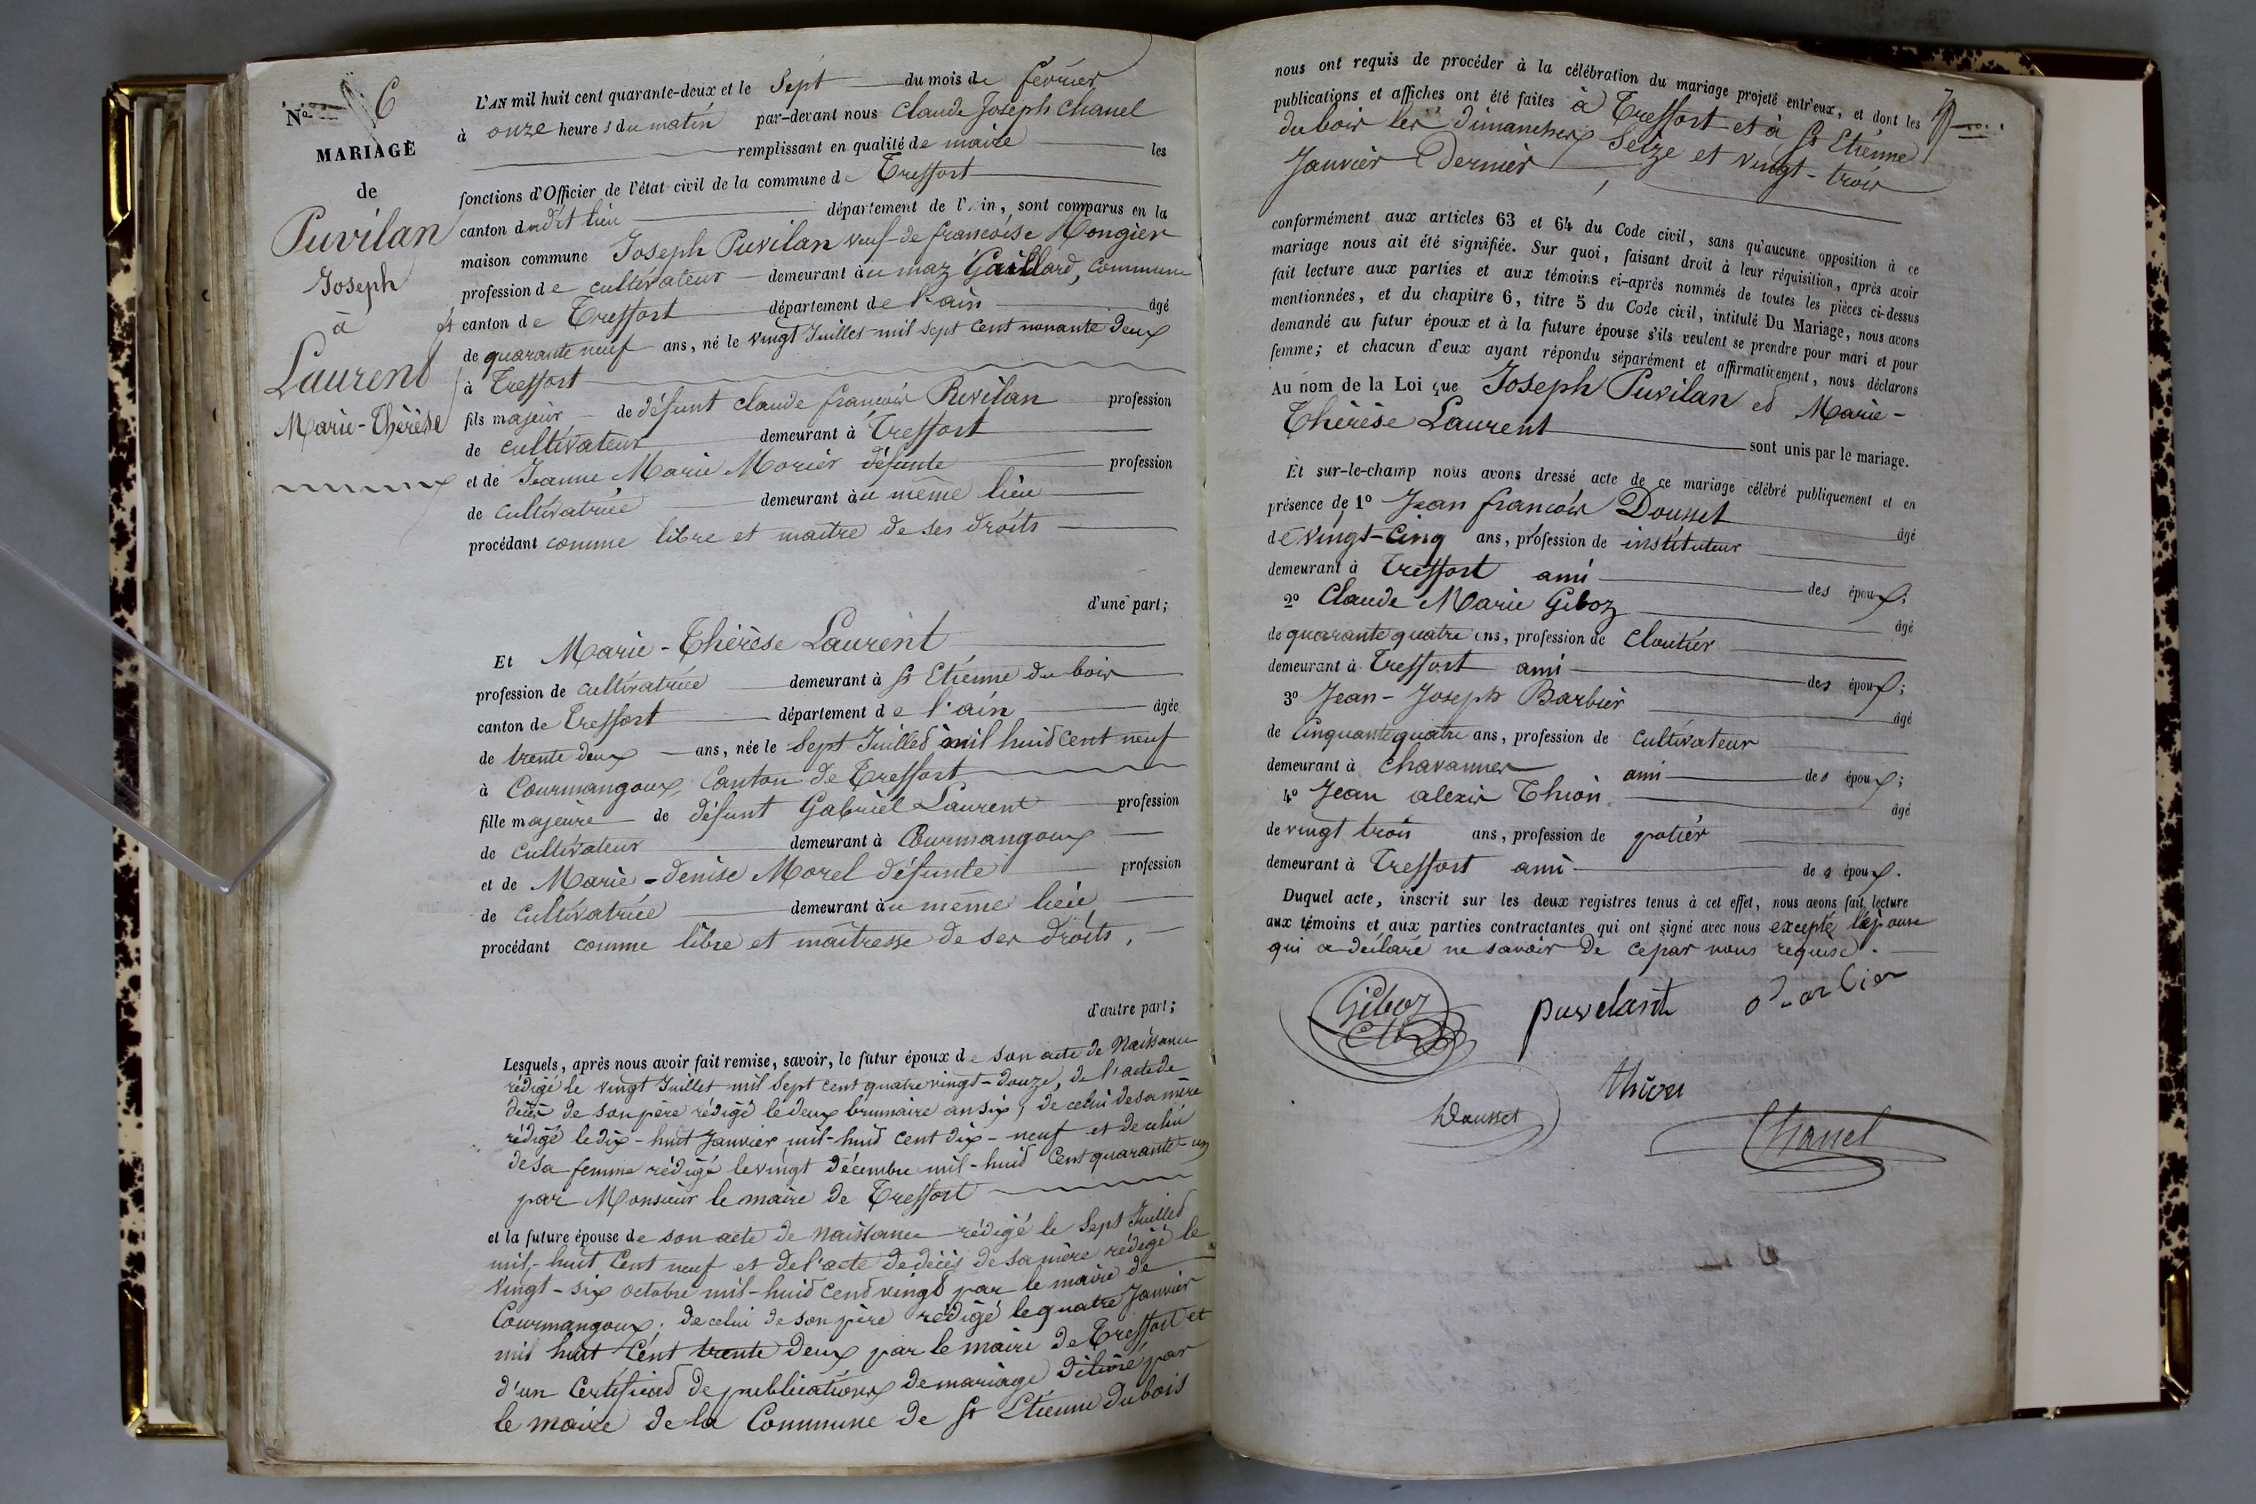 Nº 6
MARIAGE
de
Puvilan
Joseph
à
Laurent
Marie-Thérèse
L'AN mil huit cent quarante-deux et le Sept du mois de février
à onze heures du matin par-devant nous Claude Joseph Chanel
remplissant en qualité de maire les
fonctions d'Officier de l'état civil de la commune de Treffort
canton dudit lieu département de l'Ain, sont comparus en la
maison commune Joseph Puvilan veuf de francoise Mongier
profession de cultivateur demeurant au maz Gaillard, commune
et canton de Treffort département de l'ain âgé
de quarante neuf ans, né le vingt Juillet mil sept cent nonante deux
à Treffort
fils majeur de défunt claude francois Puvilan profession
de cultivateur demeurant à Treffort
et de Jeanne Marie Morier défunte profession
de cultivatrice demeurant au même lieu
procédant comme libre et maitre de ses droits
d'une part;
Et Marie-Thérèse Laurent
profession de cultivatrice demeurant à St Etienne du bois
canton de Treffort département de l'ain âgée
de trente deux ans, née le Sept Juillet mil huit cent neuf
à Courmangoux, Canton de Treffort
fille majeure de défunt Gabriel Laurent profession
de cultivateur demeurant à Courmangoux
et de Marie-denise Morel défunte profession
de cultivatrice demeurant au même lieu
procédant comme libre et maitresse de ses droits,
d'autre part;
Lesquels, après nous avoir fait remise, savoir, le futur époux de son acte de Naissance
rédigé le vingt Juillet mil sept cent quatre vingt-douze, de l'acte de
décès de son père rédigé le deux brumaire an six, de celui de sa mère
rédigé le dix-huit Janvier mil-huit cent dix-neuf et de celui
de sa femme rédigé le vingt décembre mil-huit Cent quarante-un
par Monsieur le maire de Treffort
et la future épouse de son acte de Naissance rédigé le Sept Juillet
mil-huit Cent neuf et de l'acte de décès de sa mère rédigé le
vingt-six octobre mil-huit Cent vingt par le maire de
Courmangoux, de celui de son père rédigé le quatre Janvier
mil huit Cent trente deux par le maire de Treffort et
d'un Certificat de publications de mariage délivré par
le maire de la Commune de St Etienne du bois
nous ont requis de procéder à la célébration du mariage projeté entr'eux, et dont les
publications et affiches ont été faites à Treffort et à St Etienne
du bois les dimanches Seize et vingt-trois
Janvier Dernier
conformément aux articles 63 et 64 du Code civil, sans qu'aucune opposition à ce
mariage nous ait été signifiée. Sur quoi, faisant droit à leur réquisition, après avoir
fait lecture aux parties et aux témoins ci-après nommés de toutes les pièces ci-dessus
mentionnées, et du chapitre 6, titre 5 du Code civil, intitulé Du Mariage, nous avons
demandé au futur époux et à la future épouse s'ils veulent se prendre pour mari et pour
femme; et chacun d'eux ayant répondu séparément et affirmativement, nous déclarons
Au nom de la Loi que Joseph Puvilan et Marie-
Thérèse Laurent sont unis par le mariage.
Et sur-le-champ nous avons dressé acte de ce mariage célébré publiquement et en
présence de 1º Jean francois Dousset âgé
de vingt-cinq ans, profession de instituteur
demeurant à Treffort ami des époux;
2º Claude Marie Giboz âgé
de quarante quatre ans, profession de cloutier
demeurant à Treffort ami des époux;
3º Jean-Joseph Barbier âgé
de Cinquante quatre ans, profession de cultivateur
demeurant à Chavannes ami des époux;
4º Jean alexis Thion âgé
de vingt trois ans, profession de potier
demeurant à Treffort ami des époux.
Duquel acte, inscrit sur les deux registres tenus à cet effet, nous avons fait lecture
aux témoins et aux parties contractantes qui ont signé avec nous excepté l'épouse
qui a déclaré ne savoir de ce par nous requise.
Giboz puvelant Barbier
Dousset thion
Chanel